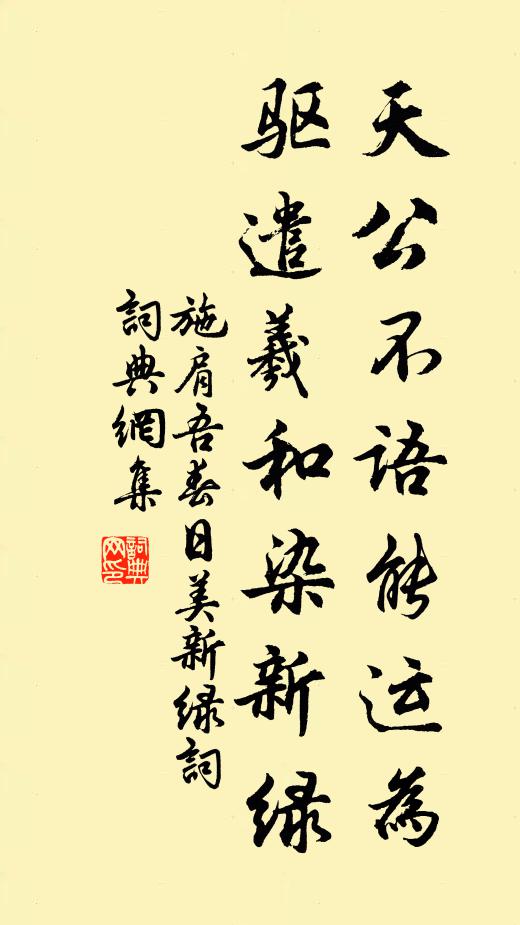 天公不语能运为
驱遣羲和染新绿
施肩吾春日美新绿詞
詞典網集
詞典
网印